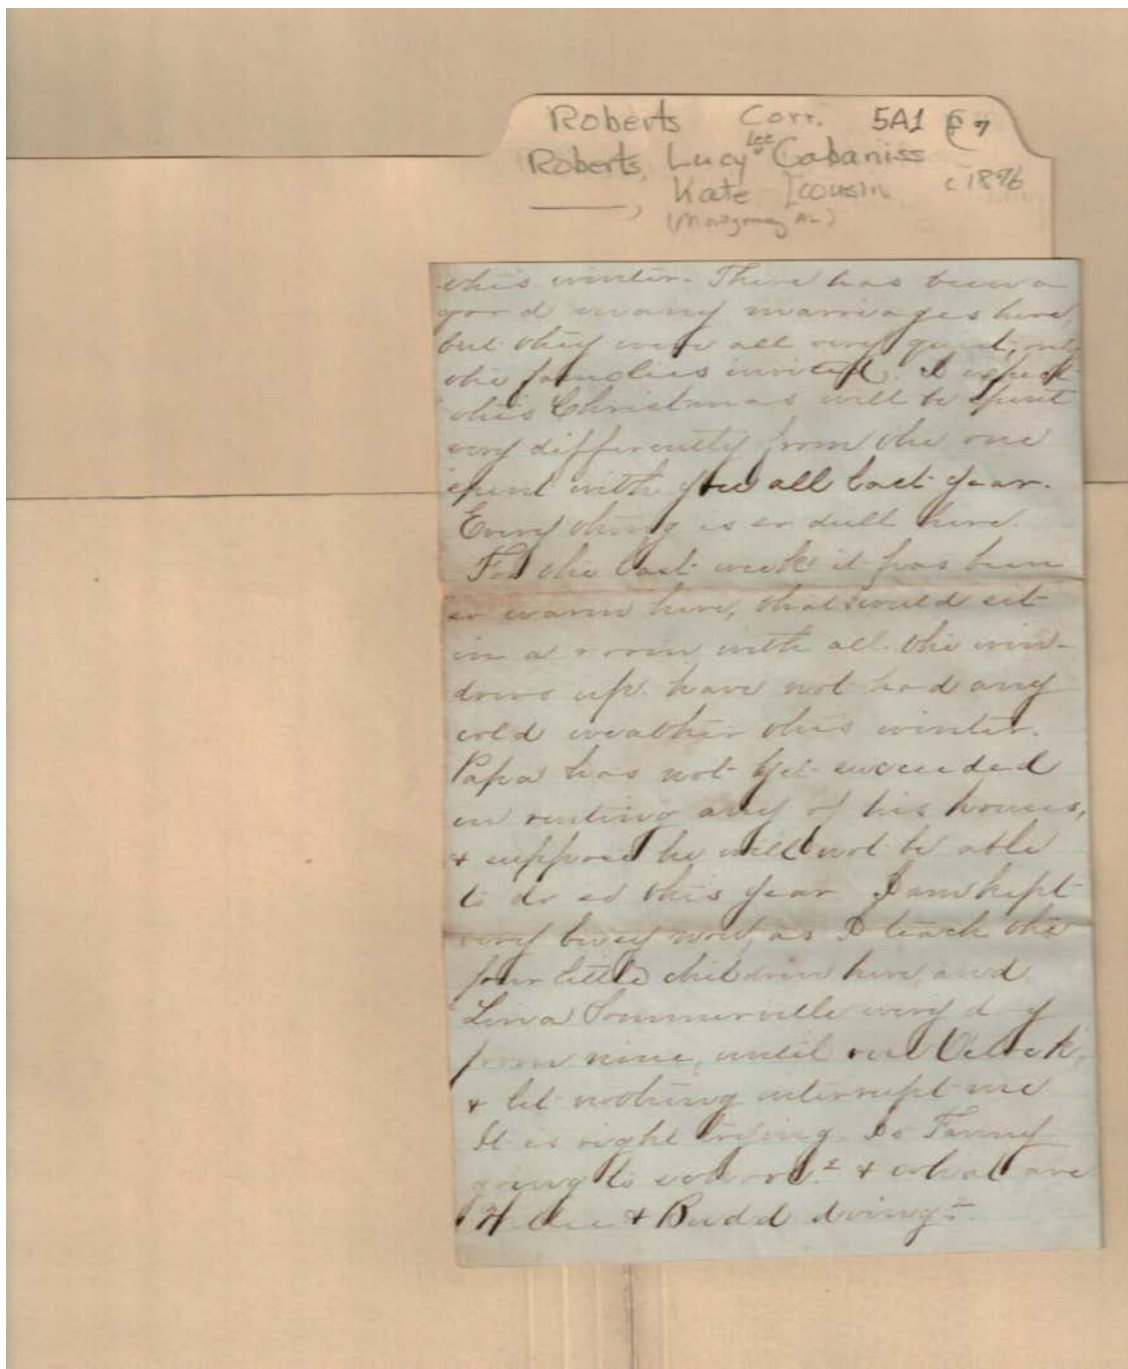 Roberts Corr. 5A1 F7
Roberts, Lucy Lee Cabaniss
Kate [cousin c 1876
(Montgomery AL)
this winter. There has been a
good many marriages here,
but they were all very quiet, only
the families invited. I expect
this Christmas will be spent
very differently from the one
spent with you all last year.
Every thing is so dull here.
For the last week it has been
so warm here, that could sit
in a room with all the win-
dows up. have not had any
cold weather this winter.
Papa has not yet succeeded
in renting any of his houses,
& suppose he will not be able
to do so this year. I am kept
very busy now, as I teach the
four little children here and
Lena Sommerville every day
from nine, until one O'clock,
& let nothing interrupt me
It is right trying. Is Fanny
going to school? & what are
& Budd doing?